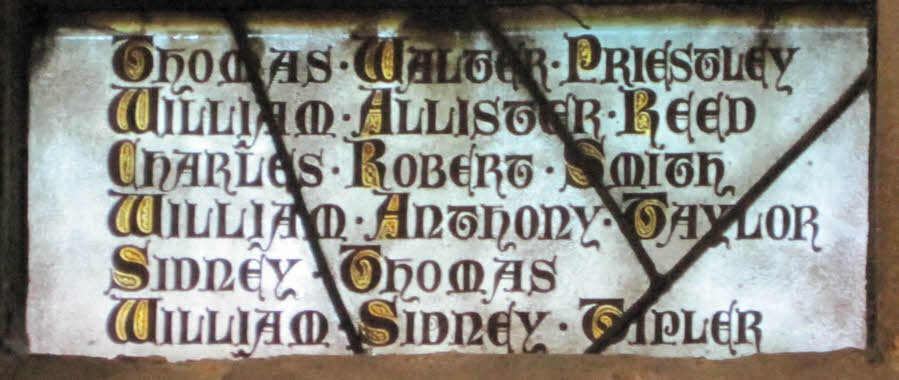 Thomas · Walter · Priestley
William · Allister · Reed
Charles · Robert · Smith
William · Anthony · Taylor
Sidney · Thomas
William · Sidney · Tipler